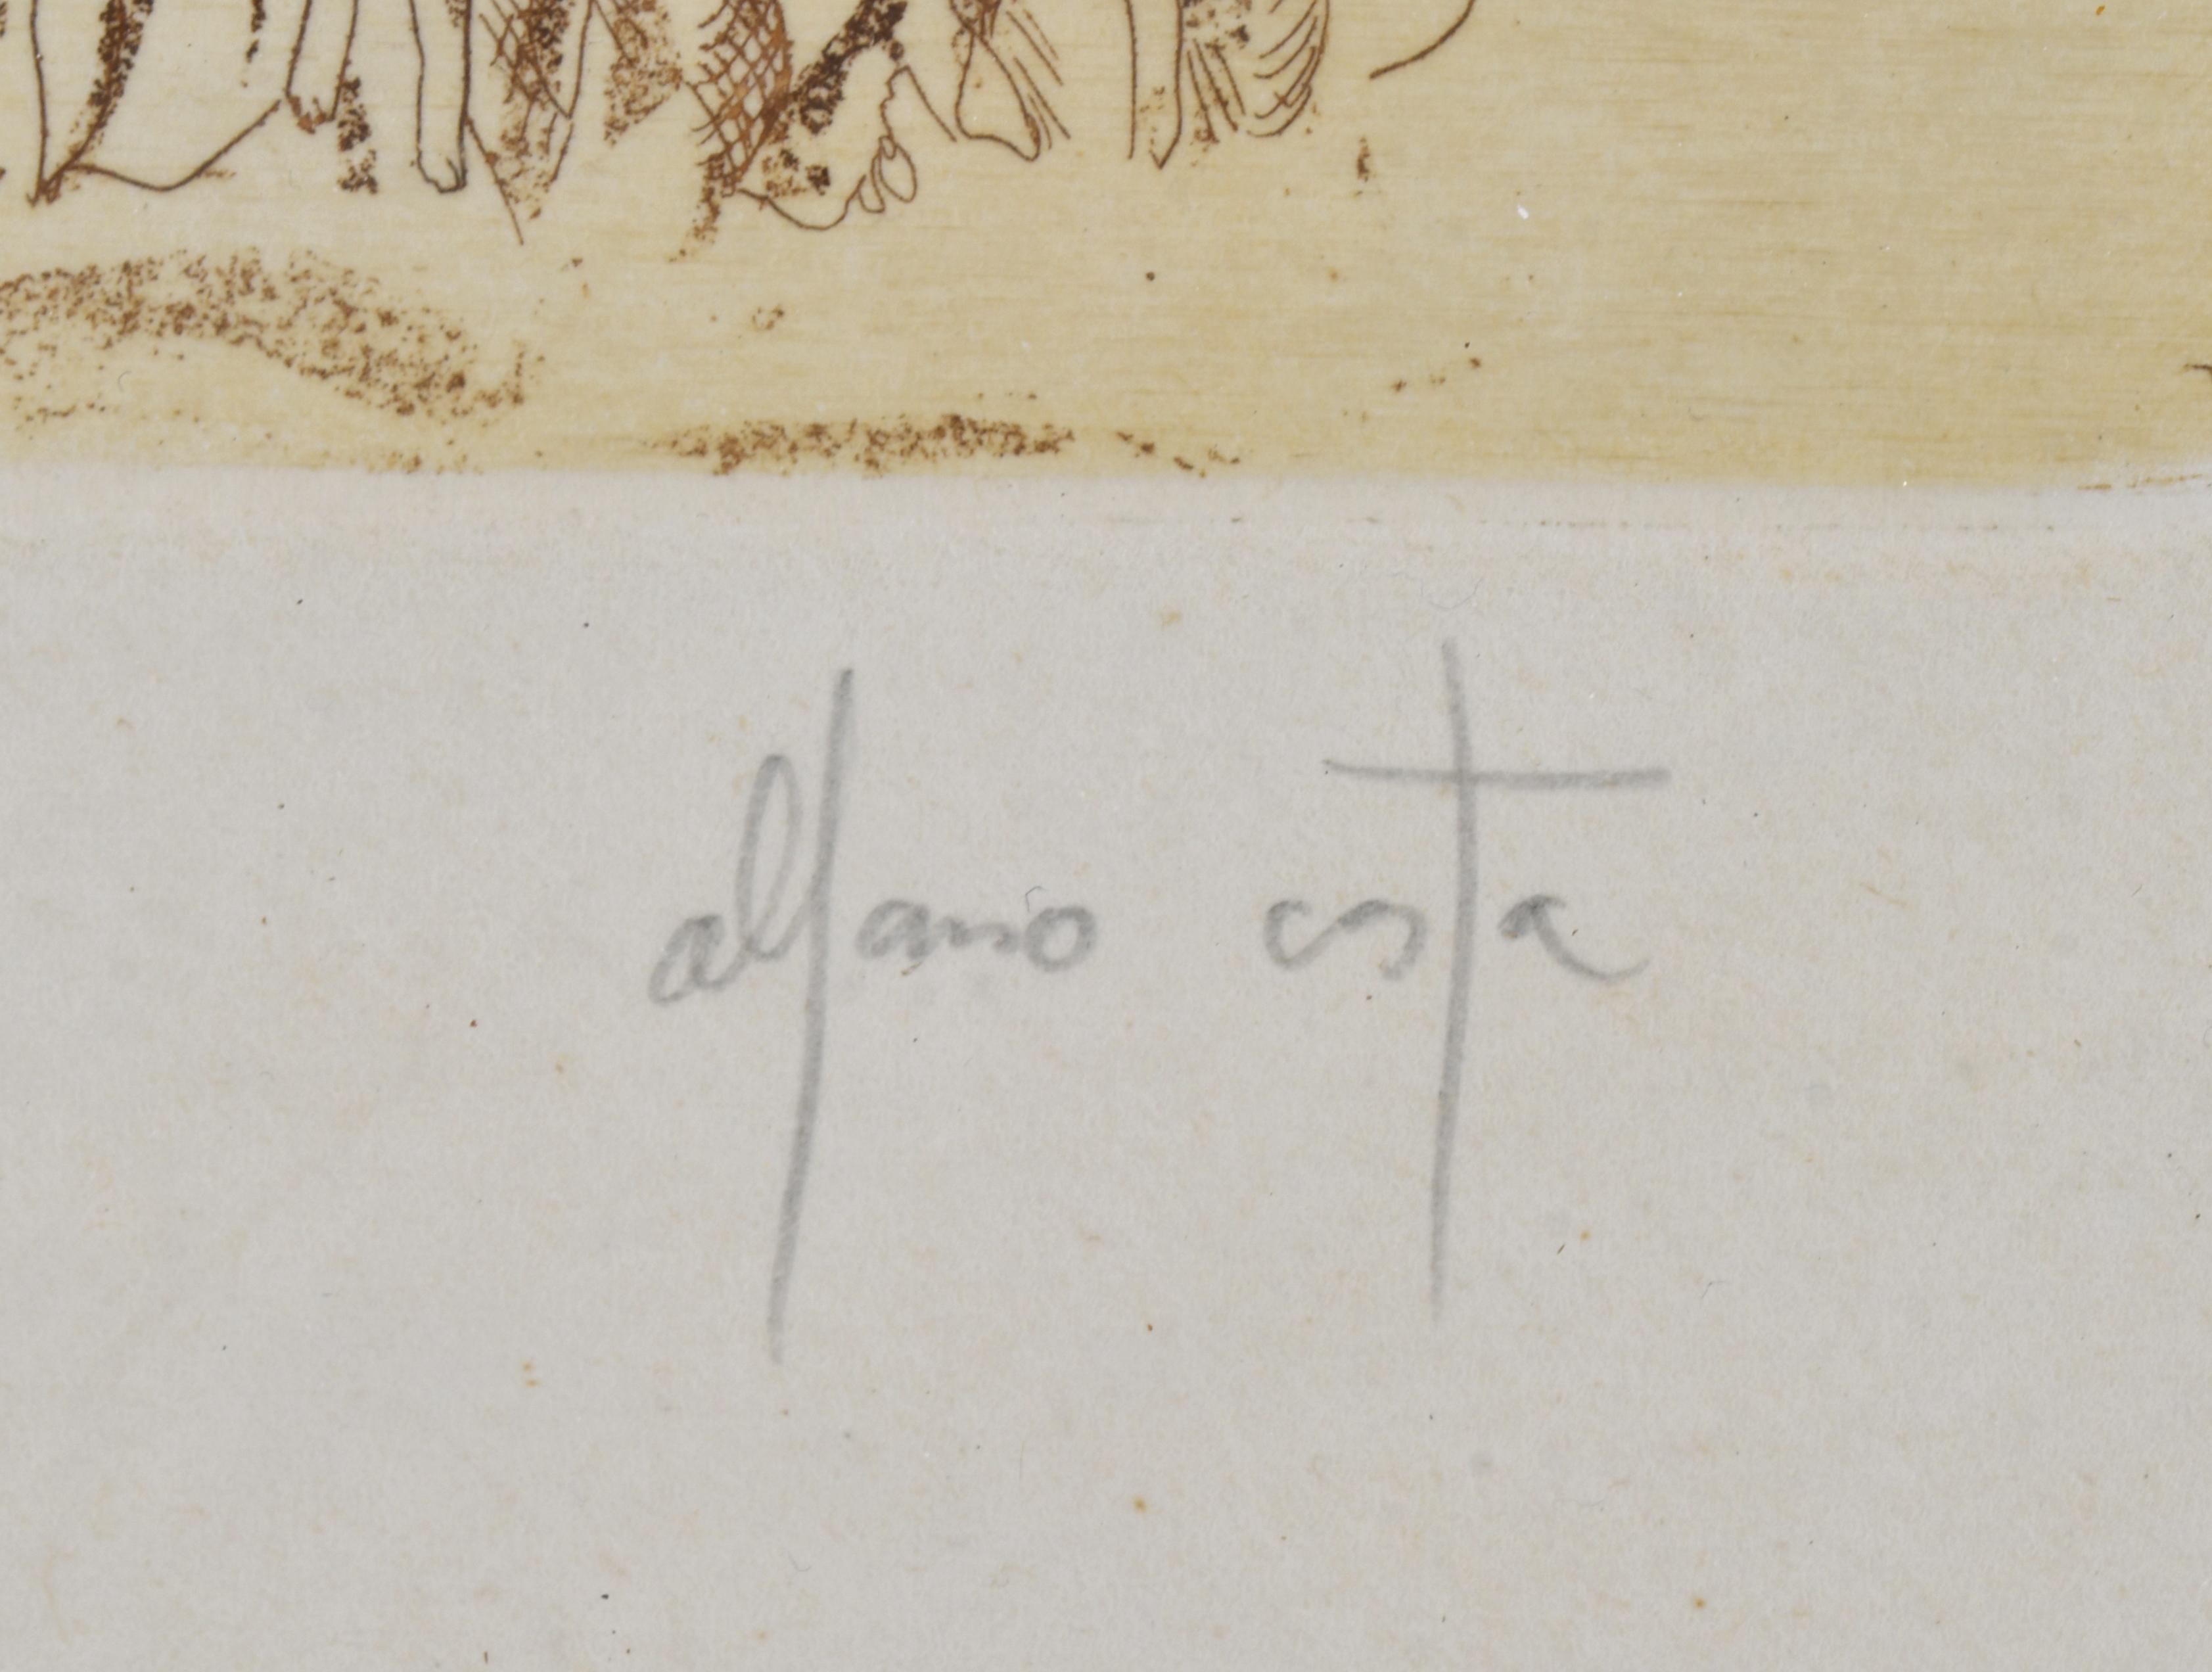 alfano costa